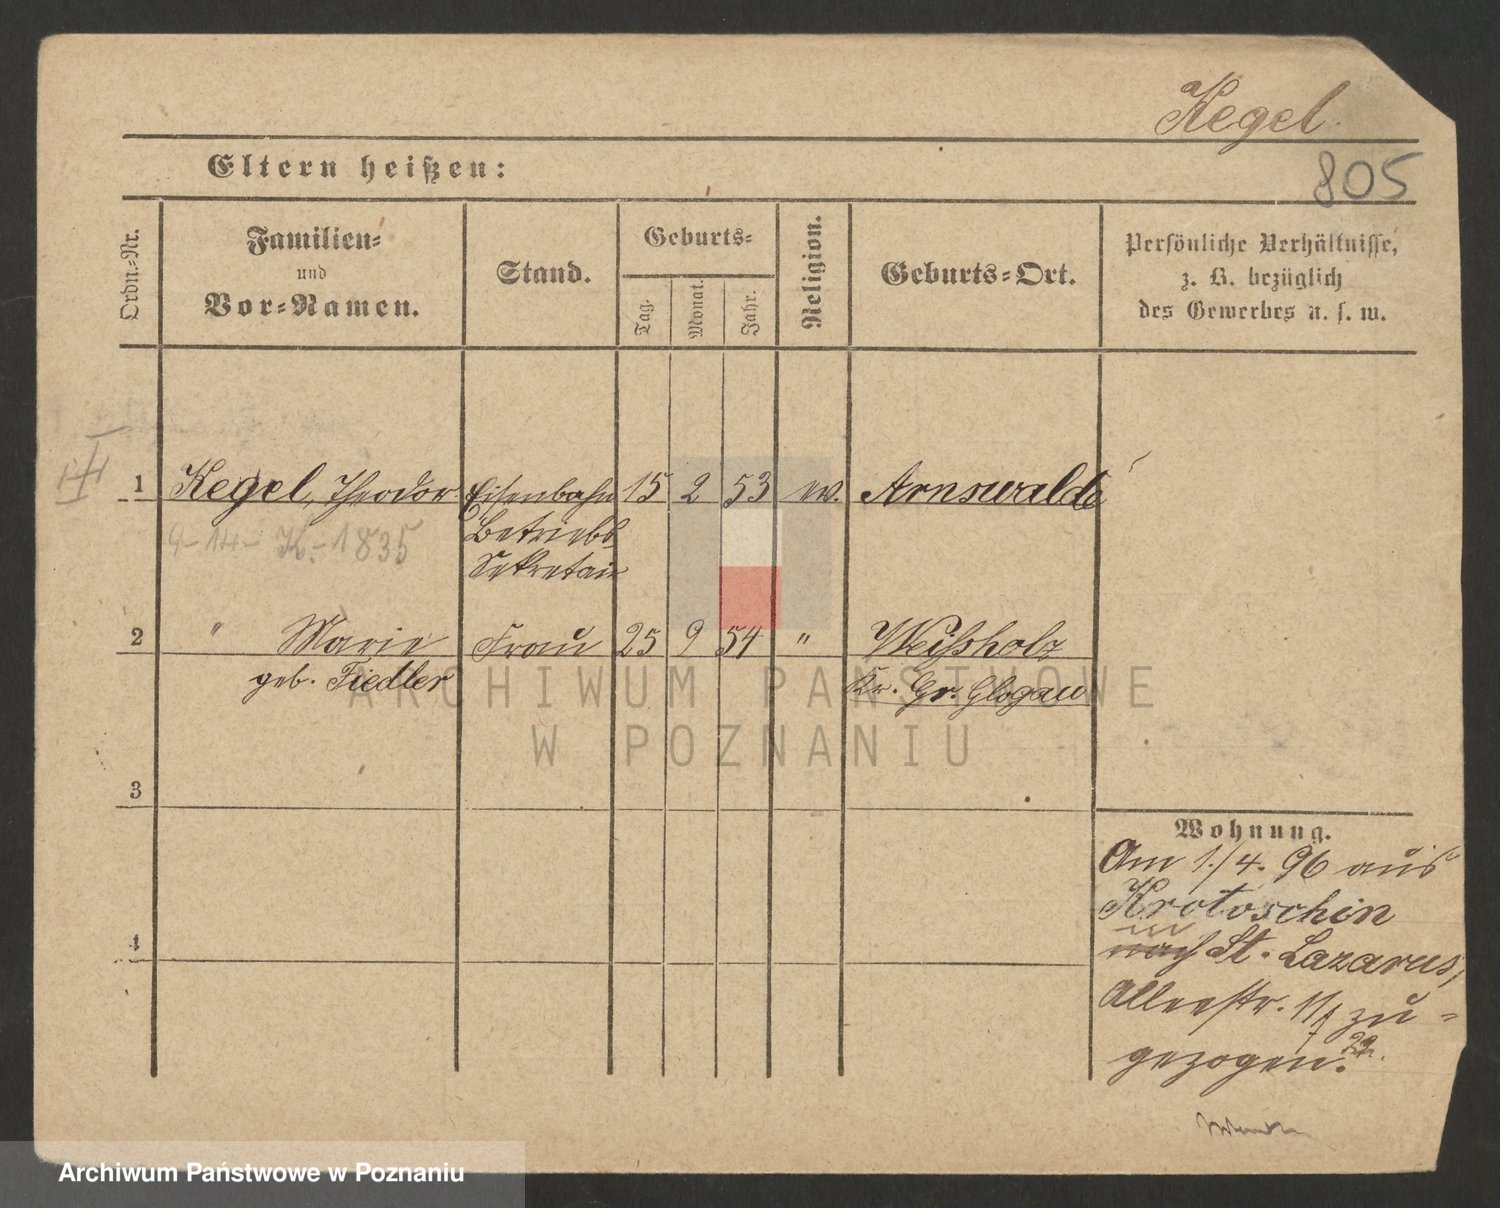 Kegel.
Eltern heißen:
805
Ordn.-Nr.
Familien-
und
Vor-Namen.
Stand.
Geburts-
Tag.
Monat.
Jahr.
Religion.
Geburts-Ort.
Persönliche Verhältnisse,
z. B. bezüglich
des Gewerbes u. s. w.
1 Kegel, Theodor Eisenbahn 15 2 53 ev. Arnswalde
9-14- K.-1835
Betriebs
Sekretair
2 " Marie Frau 25 9 54 " Weißholz
geb. Fiedler Kr. Gr. Glogau
ARCHIWUM PAŃSTWOWE
W POZNANIU
3
4
Wohnung.
Am 1./4. 96 aus
Krotoschin
in
nach St. Lazarus,
Alleestr. 11 zu-
gezogen.
Archiwum Państwowe w Poznaniu